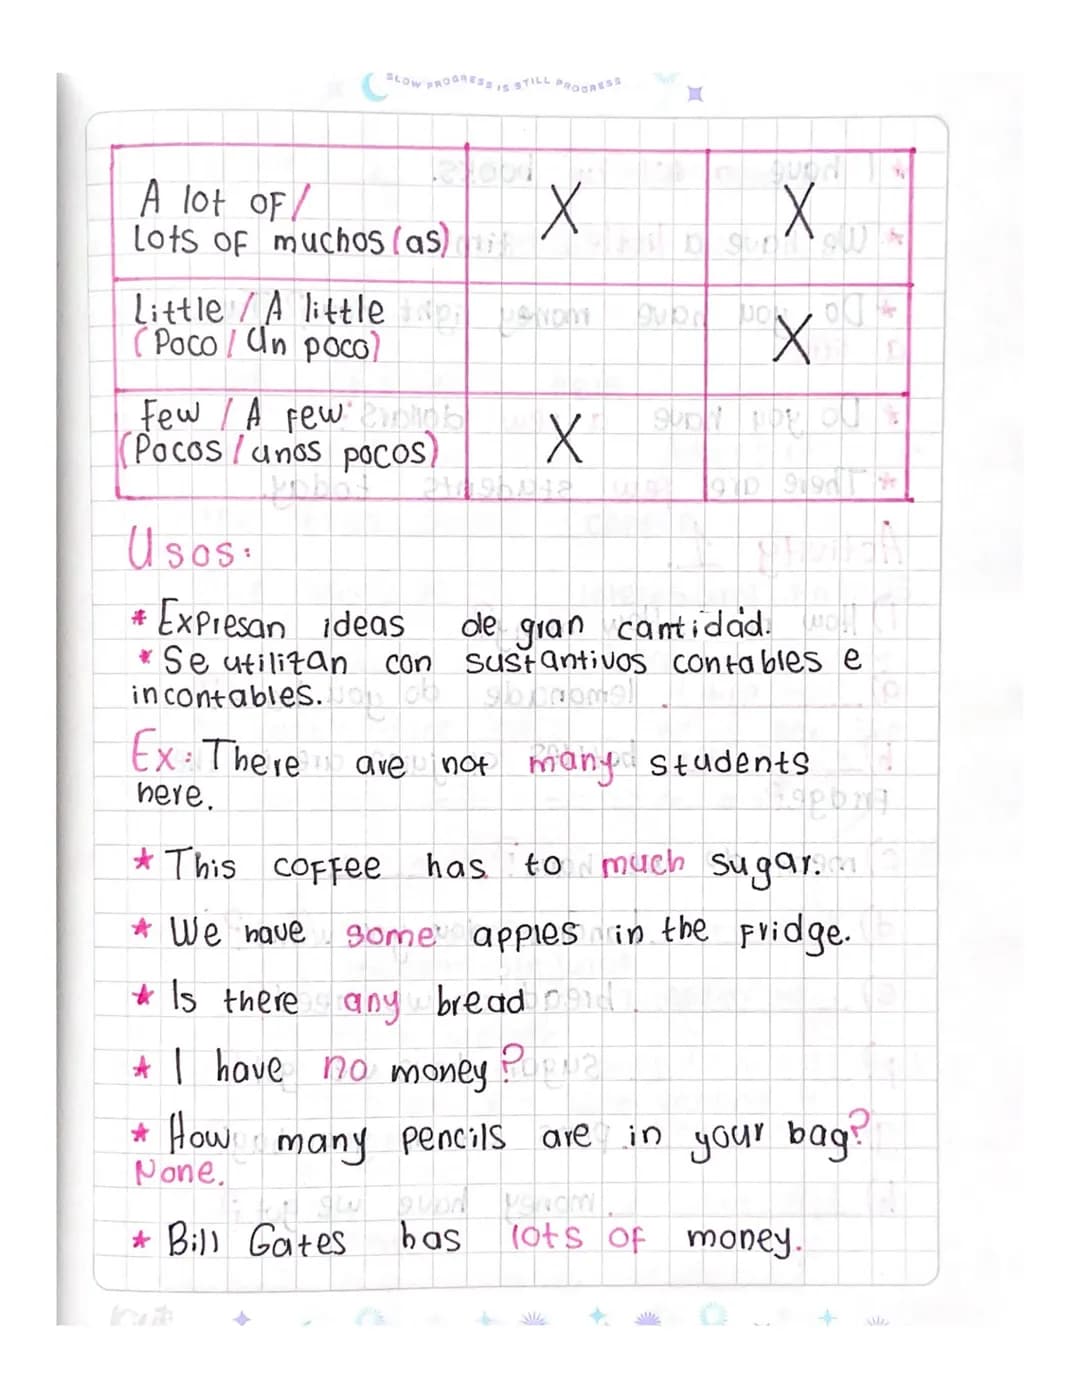 SLOW PROGRESS IS STILL PROGRESS
A lot OF/ X X
Lots OF muchos(as)
Little / A little X
(Poco / Un poco)
Few / A Few X
(Pocos / unos pocos)
Usos:
* Expresan ideas de gran cantidad.
* Se utilizan con sustantivos contables e
incontables.
Ex: There are not many students
here.
* This coffee has to much sugar.
* We have some apples in the Fridge.
* Is there any bread
* I have no money?
* How many pencils are in your bag?
None.
* Bill Gates has lots of money.